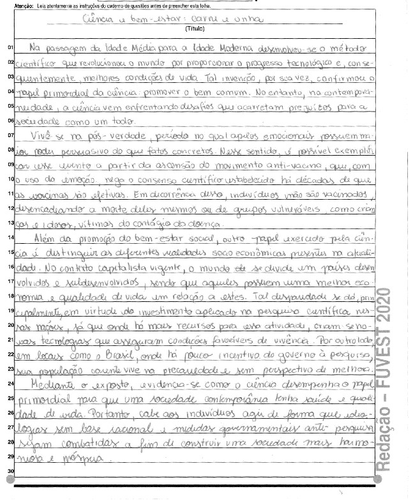 Atenção: Leia atentamente as instruções do caderno de questões antes de preencher esta folha.
Ciência e bem-estar: carne e unha
(Título)
01 Na passagem da Idade Média para a Idade Moderna desenvolveu-se o método
02 científico que revolucionou o mundo por proporcionar o progresso tecnológico e, conse-
03 quentemente, melhores condições de vida. Tal invenção, por sua vez, confirmou o
04 papel primordial da ciência: promover o bem comum. No entanto, na contempora-
05 neidade, a ciência vem enfrentando desafios que acarretam prejuízos para a
06 sociedade como um todo.
07 Vive-se na pós-verdade, período no qual apelos emocionais possuem ma-
08 ior poder persuasivo do que fatos concretos. Nesse sentido, é possível exemplifi-
09 car esse evento a partir da ascensão do movimento anti-vacina, que, com
10 o uso da emoção, nega o consenso científico estabelecido há décadas de que
11 as vacinas são efetivas. Em decorrência disso, indivíduos não são vacinados,
12 desencadeando a morte deles mesmos ou de grupos vulneráveis, como crian-
13 ças e idosos, vítimas do contágio da doença.
14 Além da promoção do bem-estar social, outro papel exercido pela ciên-
15 cia é distinguir as diferentes realidades socioeconômicas presentes na atuali-
16 dade. No contexto capitalista vigente, o mundo se divide em países desen-
17 volvidos e subdesenvolvidos, sendo que aqueles possuem uma melhor eco-
18 nomia e qualidade de vida em relação a estes. Tal desigualdade se dá, prin-
19 cipalmente, em virtude do investimento aplicado na pesquisa científica nes-
20 sas nações, já que onde há mais recursos para essa atividade, criam-se no-
21 vas tecnologias que asseguram condições favoráveis de vivência. Por outro lado,
22 em locais como o Brasil, onde há pouco incentivo do governo à pesquisa,
23 sua população carente vive na precariedade e sem perspectiva de melhora.
24 Mediante o exposto, evidencia-se como a ciência desempenha o papel
25 primordial para que uma sociedade contemporânea tenha saúde e quali-
26 dade de vida. Portanto, cabe aos indivíduos agir de forma que ideo-
27 logias sem base racional e medidas governamentais anti-pesquisa
28 sejam combatidas a fim de construir uma sociedade mais harmo-
29 niosa e próspera.
30
Redação – FUVEST 2020